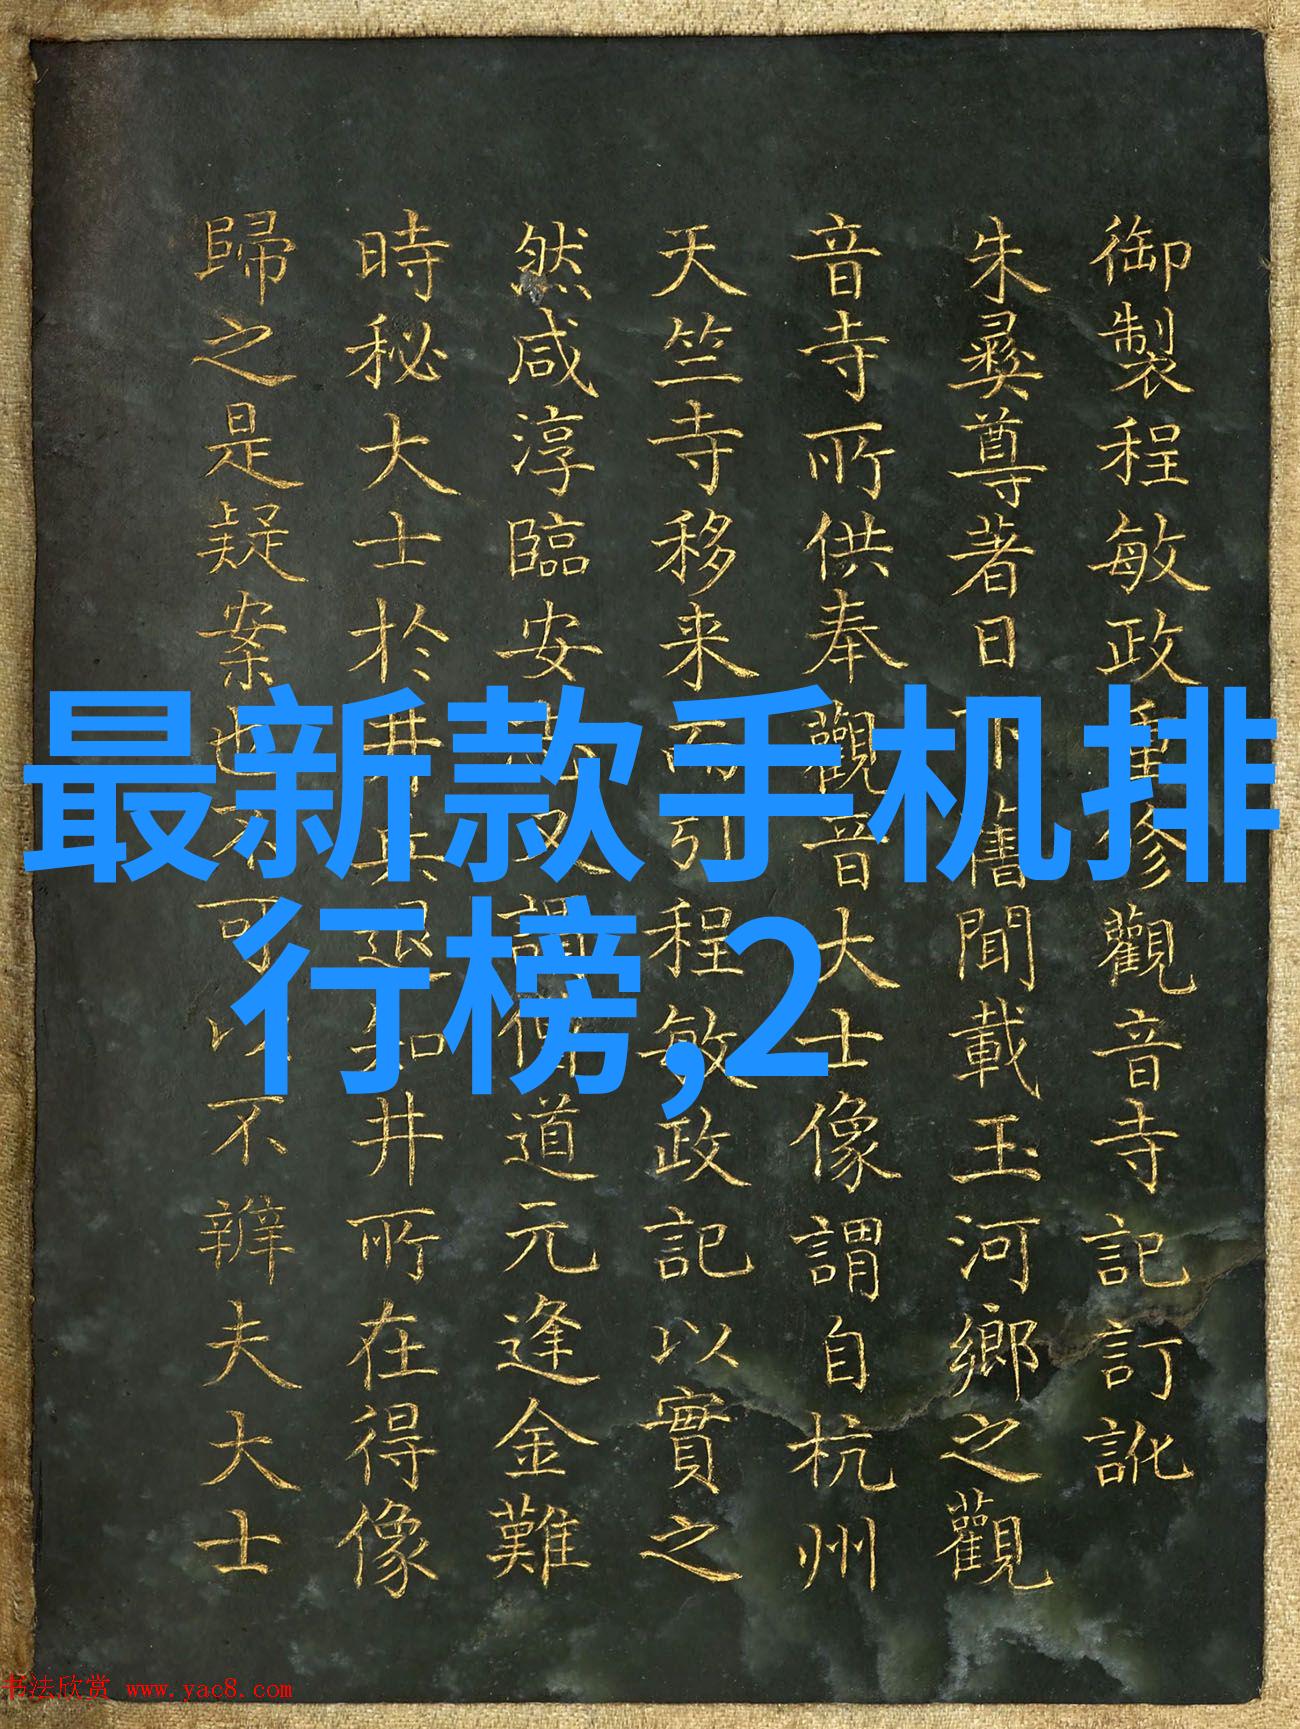 最新款手机排
行榜,2
御製程敏政重修觀音寺記訂訛
朱彝尊著日下舊聞載玉河鄉之觀
音寺所供奉觀音大士像謂自杭州
天竺寺移来而引程敏政記以實之
然咸淳臨安志又謂僧道元逢金難
時秘大士於井兵退知井所在得像
歸之是疑案也不可以不辨夫大士
书法欣赏 www.yac8.com